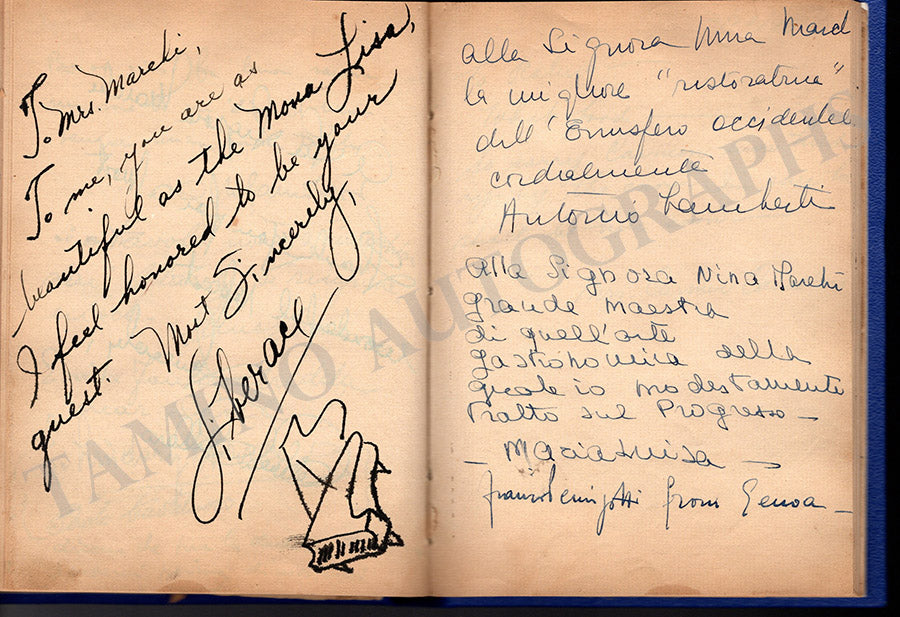 To Mrs. Marchi,
To me, you are as
beautiful as the Mona Lisa,
I feel honored to be your
guest. Most Sincerely,
Liberace
alla Signora Nina March
la migliore "ristoratrice"
dell'Emisfero occidentale
cordialmente
Antonio Lamberti
Alla Signora Nina Marchi
grande maestra
di quell'arte
gastronomica della
quale io modestamente
tratto sul Progresso —
— Maria Luisa —
from Genoa —
TAMINO AUTOGRAPHS